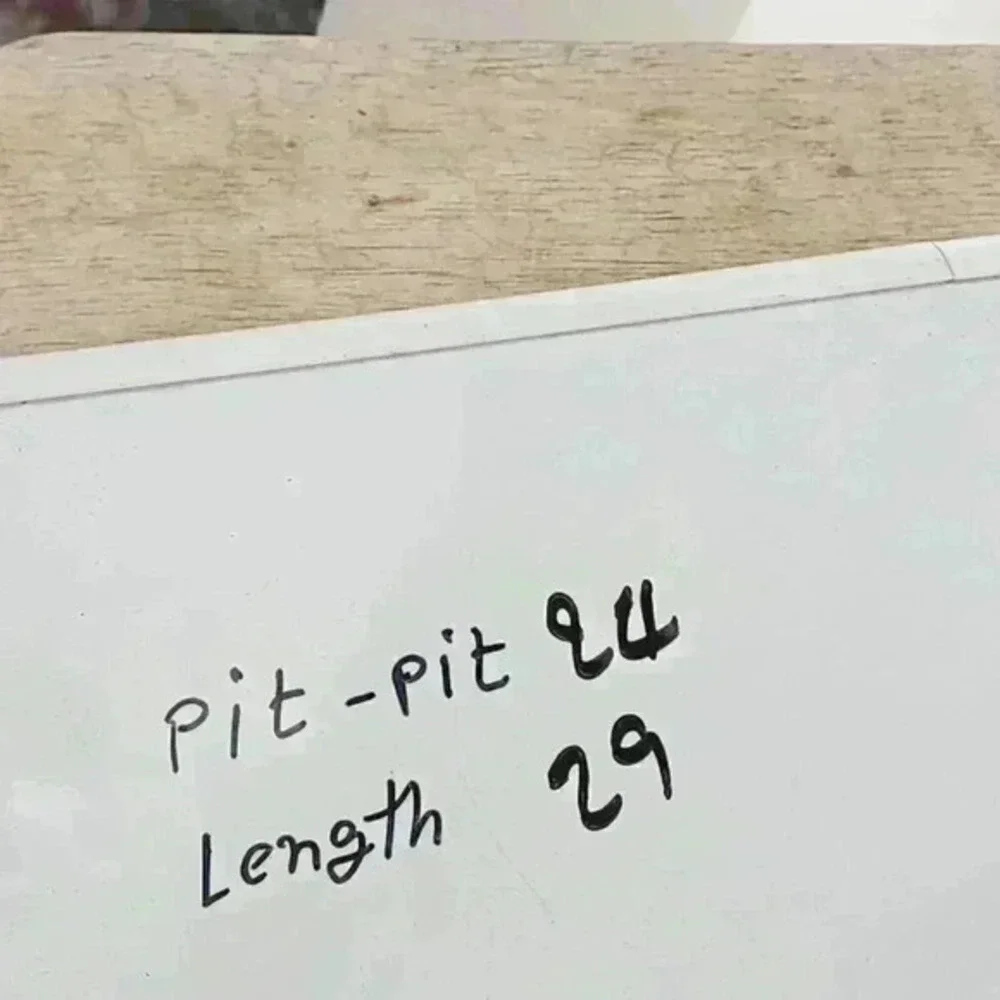 pit-pit 24
Length 29